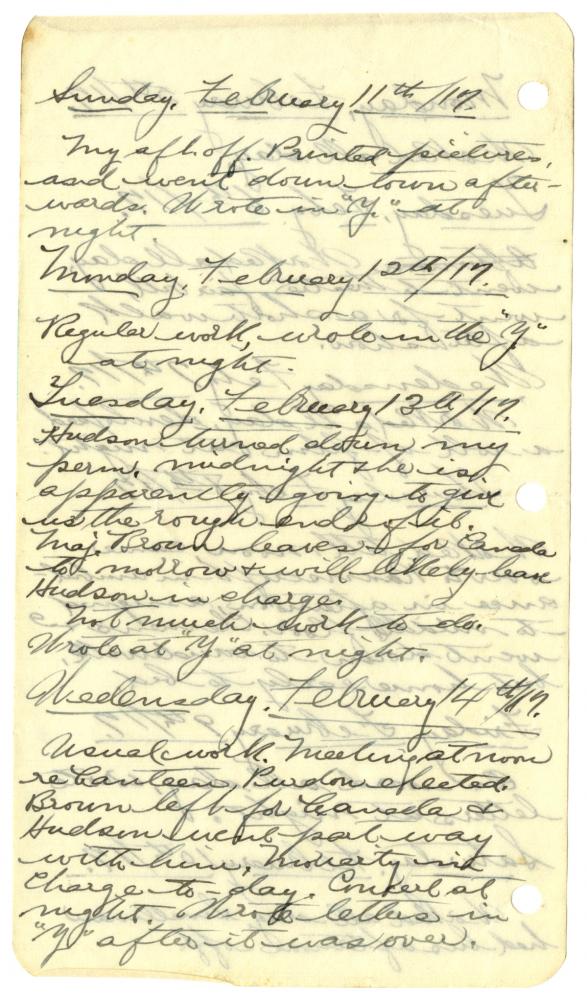 Sunday, February 11th/17.
My aft. off. Printed pictures,
and went down town after-
wards. Wrote in "Y." at
night
Monday, February 12th/17.
Regular work, wrote in the "Y."
at night.
Tuesday, February 13th/17.
Hudson turned down my
perm. midnight & he is
apparently going to give
us the rough end of it.
Maj. Brown leaves for Canada
to-morrow & will likely leave
Hudson in charge.
Not much work to do.
Wrote at "Y" at night.
Wedensday, February 14th/17.
Usual work. Meeting at noon
re Canteen, Purdon elected.
Brown left for Canada &
Hudson went part way
with him, Moriarty in
charge to-day. Concert at
night. Wrote letters in
"Y" after it was over.